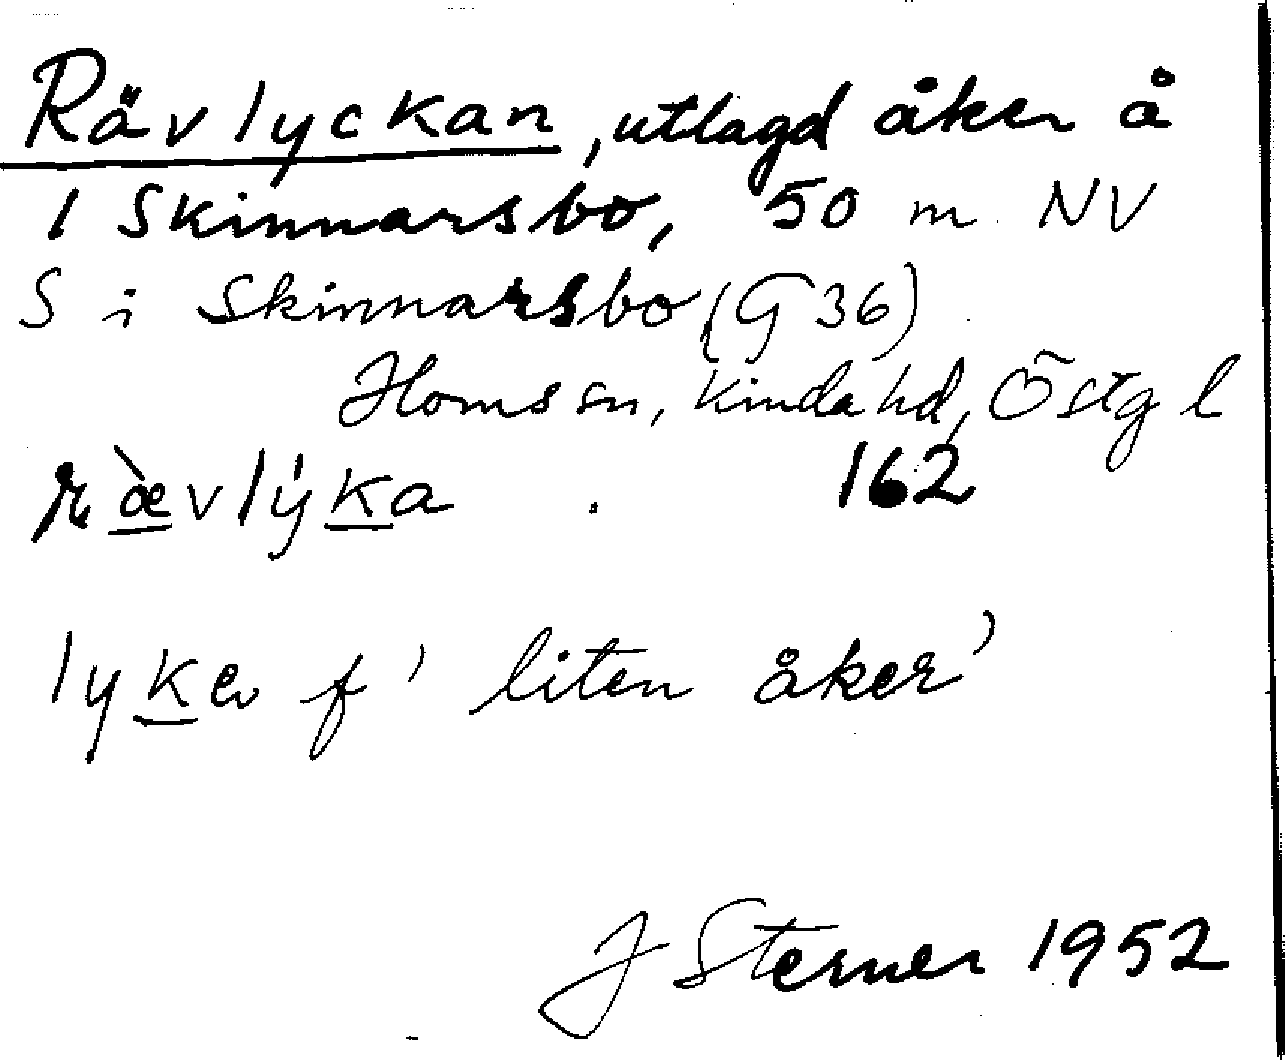 Rävlyckan, utlagd åker å
1 Skinnarsbo, 50 m NV
S i Skinnarsbo (G 36)
Horns sn, Kinda hd, Östg l
ræ̀vlýka 162
lyka f 'liten åker'
J Sterner 1952